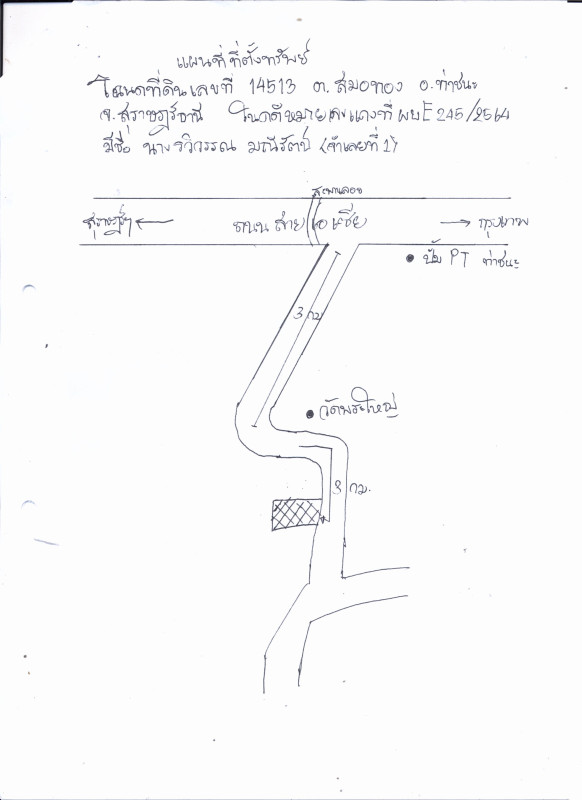 แผนที่ที่ตั้งทรัพย์
โฉนดที่ดินเลขที่ 14513 ต. สมอทอง อ.ท่าชนะ
จ.สุราษฎร์ธานี โฉนดมีหมายเลขแดงที่ ผบE 245/2564
มีชื่อ นางรวิวรรณ มณีรัตน์ (จำเลยที่ 1)
สะพานลอย
สุราษฎร์ฯ ถนนสายเอเซีย กรุงเทพ
ปั้ม PT ท่าชนะ
3 กม
วัดพระใหญ่
8 กม.